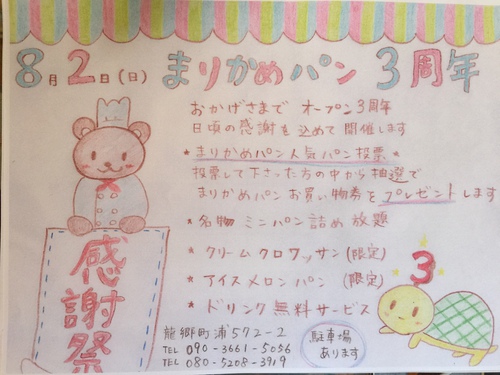 8月2日(日) まりかめパン 3周年
おかげさまで オープン3周年
日頃の感謝を込めて開催します
★まりかめパン人気パン投票★
投票して下さった方の中から抽選で
まりかめパン お買い物券をプレゼントします
★名物 ミニパン詰め放題
★クリームクロワッサン(限定)
★アイスメロンパン (限定)
★ドリンク無料サービス
感謝祭
3
龍郷町浦572-2
TEL 090-3661-5056
TEL 080-5208-3919
駐車場
あります